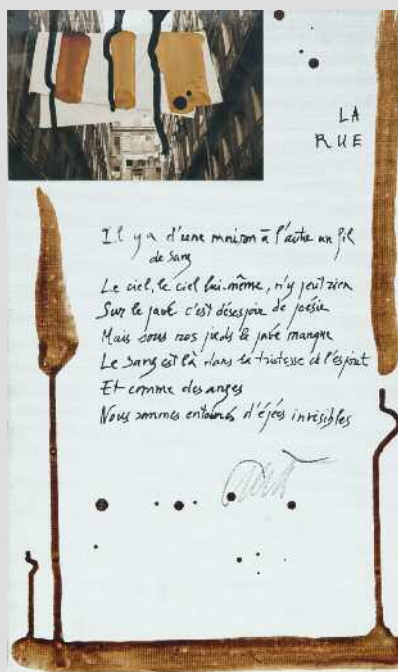 LA
RUE
Il y a d'une maison à l'autre un fil
de sang
Le ciel, le ciel lui-même, n'y peut rien
Sur le pavé c'est désespoir de poésie
Mais sous nos pieds le pavé manque
Le sang est là dans la tristesse de l'esprit
Et comme des anges
Nous sommes entourés d'épées invisibles